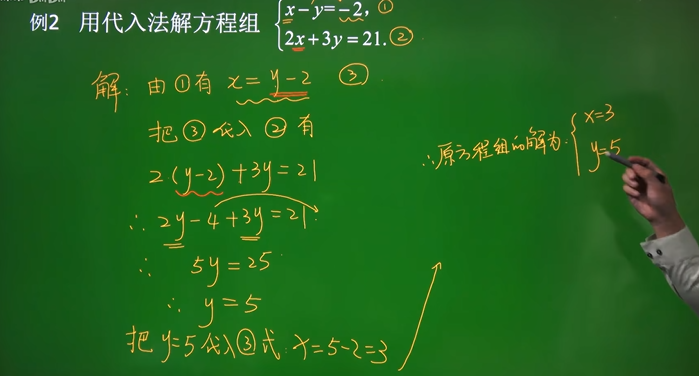 例2 用代入法解方程组 { x－y=－2, ①
2x+3y=21. ②
解: 由①有 x=y-2 ③
把③代入②有
2(y-2)+3y=21
∴ 2y-4+3y=21
∴ 5y=25
∴ y=5
把y=5代入③式: x=5-2=3
∴原方程组的解为: { x=3
y=5